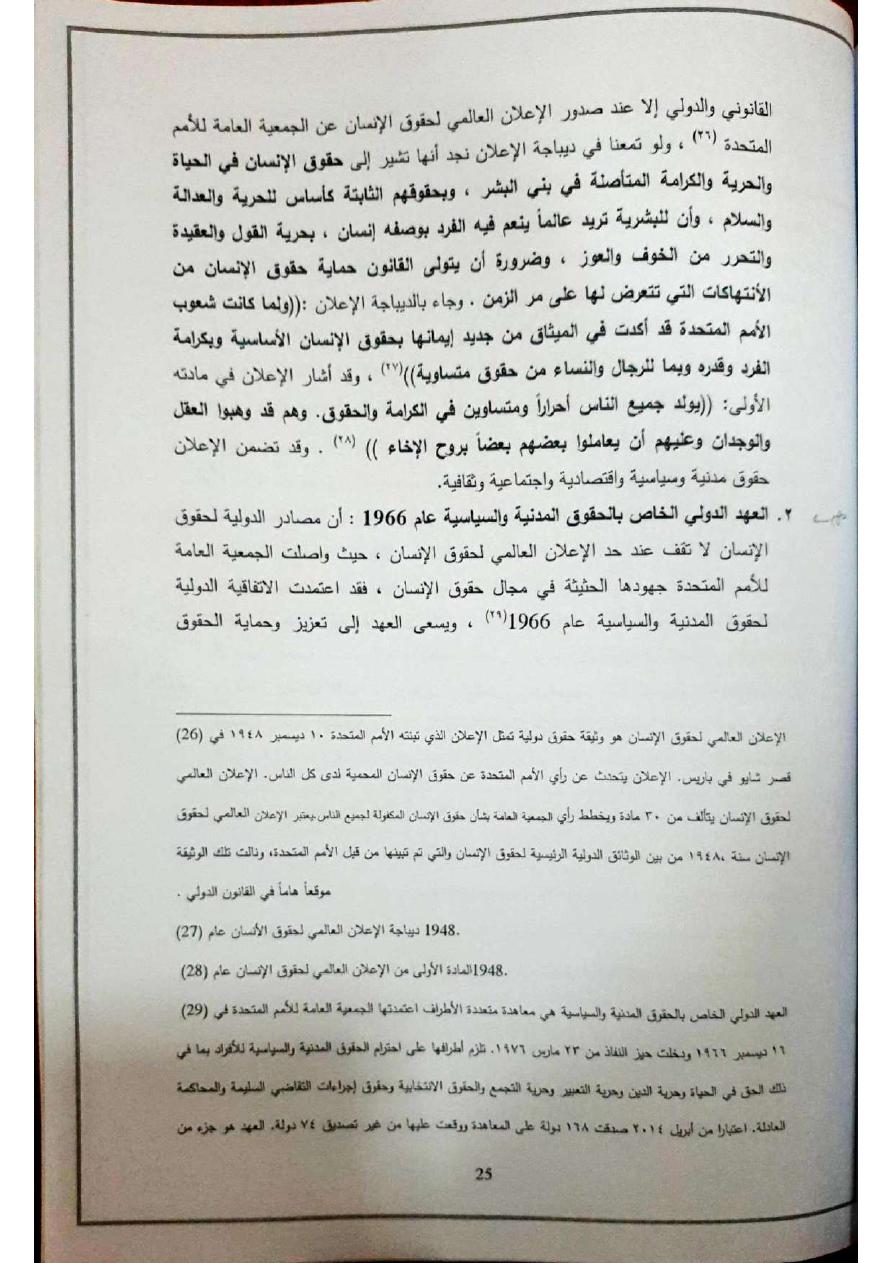 القانوني والدولي إلا عند صدور الإعلان العالمي لحقوق الإنسان عن الجمعية العامة للأمم
المتحدة (٢٦) ، ولو تمعنا في ديباجة الإعلان نجد أنها تشير إلى حقوق الإنسان في الحياة
والحرية والكرامة المتأصلة في بني البشر ، وبحقوقهم الثابتة كأساس للحرية والعدالة
والسلام ، وأن للبشرية تريد عالماً ينعم فيه الفرد بوصفه إنسان ، بحرية القول والعقيدة
والتحرر من الخوف والعوز ، وضرورة أن يتولى القانون حماية حقوق الإنسان من
الأنتهاكات التي تتعرض لها على مر الزمن . وجاء بالديباجة الإعلان :((ولما كانت شعوب
الأمم المتحدة قد أكدت في الميثاق من جديد إيمانها بحقوق الإنسان الأساسية وبكرامة
الفرد وقدره وبما للرجال والنساء من حقوق متساوية))(٢٧) ، وقد أشار الإعلان في مادته
الأولى: ((يولد جميع الناس أحراراً ومتساوين في الكرامة والحقوق. وهم قد وهبوا العقل
والوجدان وعليهم أن يعاملوا بعضهم بعضاً بروح الإخاء )) (٢٨) . وقد تضمن الإعلان
حقوق مدنية وسياسية واقتصادية واجتماعية وثقافية.
٢. العهد الدولي الخاص بالحقوق المدنية والسياسية عام 1966 : أن مصادر الدولية لحقوق
الإنسان لا تقف عند حد الإعلان العالمي لحقوق الإنسان ، حيث واصلت الجمعية العامة
للأمم المتحدة جهودها الحثيثة في مجال حقوق الإنسان ، فقد اعتمدت الاتفاقية الدولية
لحقوق المدنية والسياسية عام 1966(٢٩) ، ويسعى العهد إلى تعزيز وحماية الحقوق
الإعلان العالمي لحقوق الإنسان هو وثيقة حقوق دولية تمثل الإعلان الذي تبنته الأمم المتحدة ١٠ ديسمبر ١٩٤٨ في (26)
قصر شايو في باريس. الإعلان يتحدث عن رأي الأمم المتحدة عن حقوق الإنسان المحمية لدى كل الناس. الإعلان العالمي
لحقوق الإنسان يتألف من ٣٠ مادة ويخطط رأي الجمعية العامة بشأن حقوق الإنسان المكفولة لجميع الناس.يعتبر الإعلان العالمي لحقوق
الإنسان سنة ،١٩٤٨ من بين الوثائق الدولية الرئيسية لحقوق الإنسان والتي تم تبينها من قبل الأمم المتحدة، ونالت تلك الوثيقة
موقعاً هاماً في القانون الدولي .
.1948 ديباجة الإعلان العالمي لحقوق الأنسان عام (27)
.1948المادة الأولى من الإعلان العالمي لحقوق الإنسان عام (28)
العهد الدولي الخاص بالحقوق المدنية والسياسية هي معاهدة متعددة الأطراف اعتمدتها الجمعية العامة للأمم المتحدة في (29)
١٦ ديسمبر ١٩٦٦ ودخلت حيز النفاذ من ٢٣ مارس ١٩٧٦. تلزم أطرافها على احترام الحقوق المدنية والسياسية للأفراد بما في
ذلك الحق في الحياة وحرية الدين وحرية التعبير وحرية التجمع والحقوق الانتخابية وحقوق إجراءات التقاضي السليمة والمحاكمة
العادلة. اعتبارا من أبريل ٢٠١٤ صدقت ١٦٨ دولة على المعاهدة ووقعت عليها من غير تصديق ٧٤ دولة. العهد هو جزء من
25